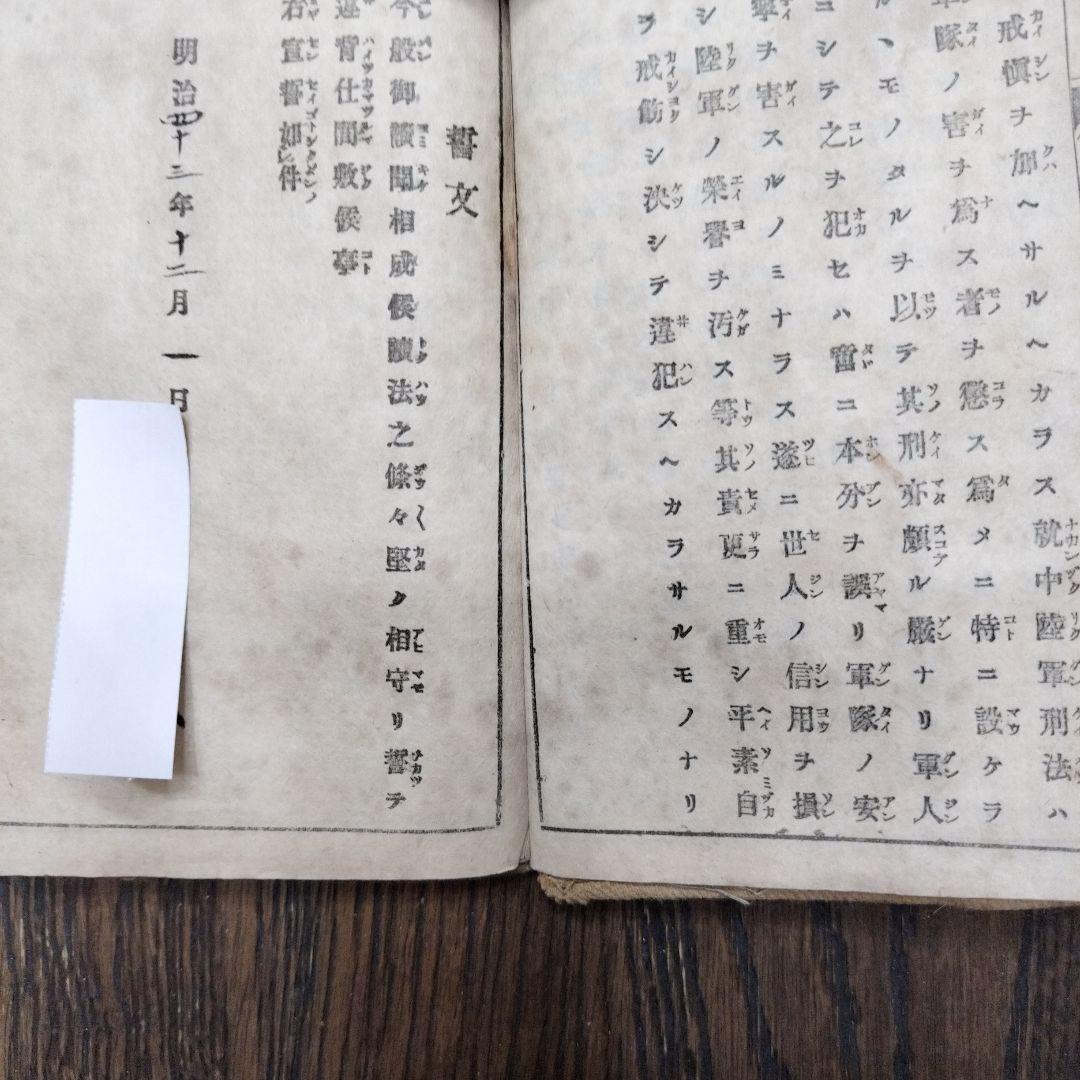 戒愼ヲ加ヘサルヘカラス就中陸軍刑法ハ
軍隊ノ害ヲ爲ス者ヲ懲ス爲メニ特ニ設ケラ
ルヽモノタルヲ以テ其刑亦頗ル嚴ナリ軍人
ニシテ之ヲ犯セハ啻ニ本分ヲ誤リ軍隊ノ安
寧ヲ害スルノミナラス遂ニ世人ノ信用ヲ損
シ陸軍ノ榮譽ヲ汚ス等其責更ニ重シ平素自
ラ戒飭シ決シテ違犯スヘカラサルモノナリ
誓文
今般御讀聞相成候讀法之條々堅ク相守リ誓テ
違背仕間敷候事
右宣誓如件
明治四十三年十二月一日